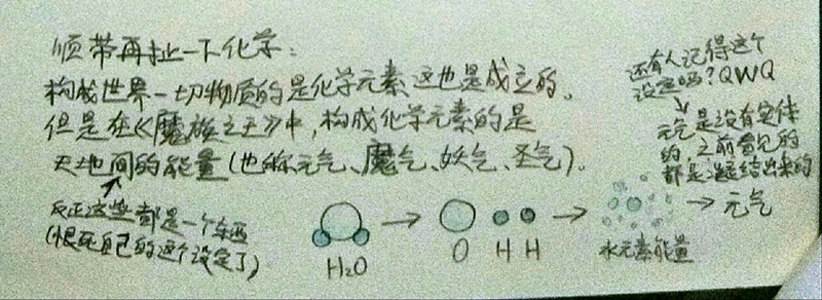 顺带再扯一下化学：
构成世界一切物质的是化学元素这也是成立的。
但是在《魔族之王》中，构成化学元素的是
天地间的能量（也称元气、魔气、妖气、圣气）。
反正这些都是一个东西
（恨死自己的这个设定了）
还有人记得这个
设定吗？QWQ
元气是没有实体
的 之前看见的
都是凝结出来的
H₂O
O H H
水元素能量
元气